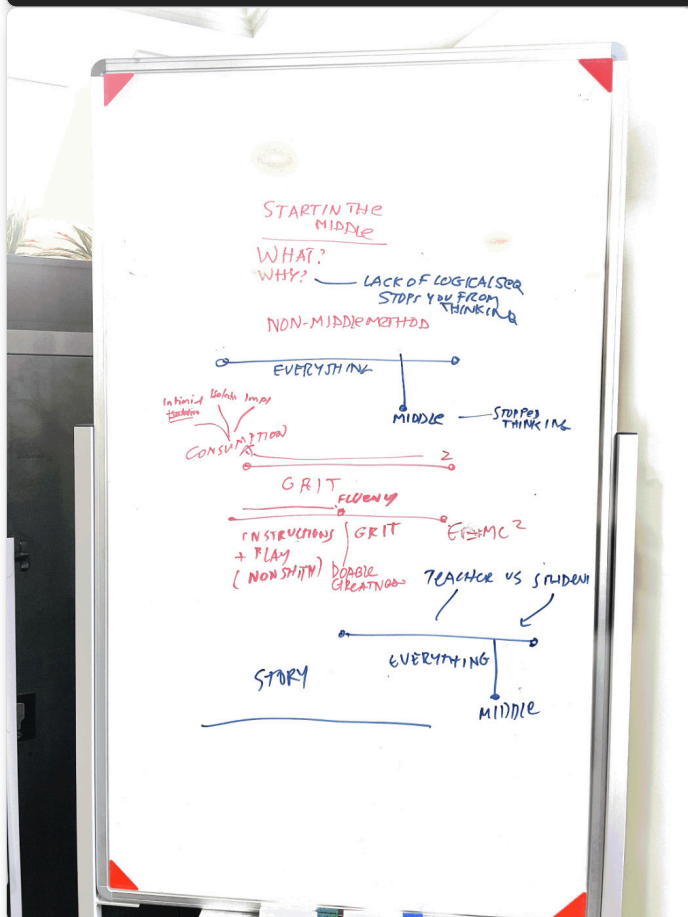 START IN THE
MIDDLE
WHAT?
WHY?
LACK OF LOGICAL SEQ
STOPS YOU FROM
THINKING
NON-MIDDLE METHOD
EVERYTHING
MIDDLE
STOPPED
THINKING
CONSUMPTION
2
GRIT
FLUENY
INSTRUCTIONS
+ PLAY
GRIT
E=MC²
DOABLE
GREATNESS
TEACHER VS STUDENT
EVERYTHING
MIDDLE
STORY